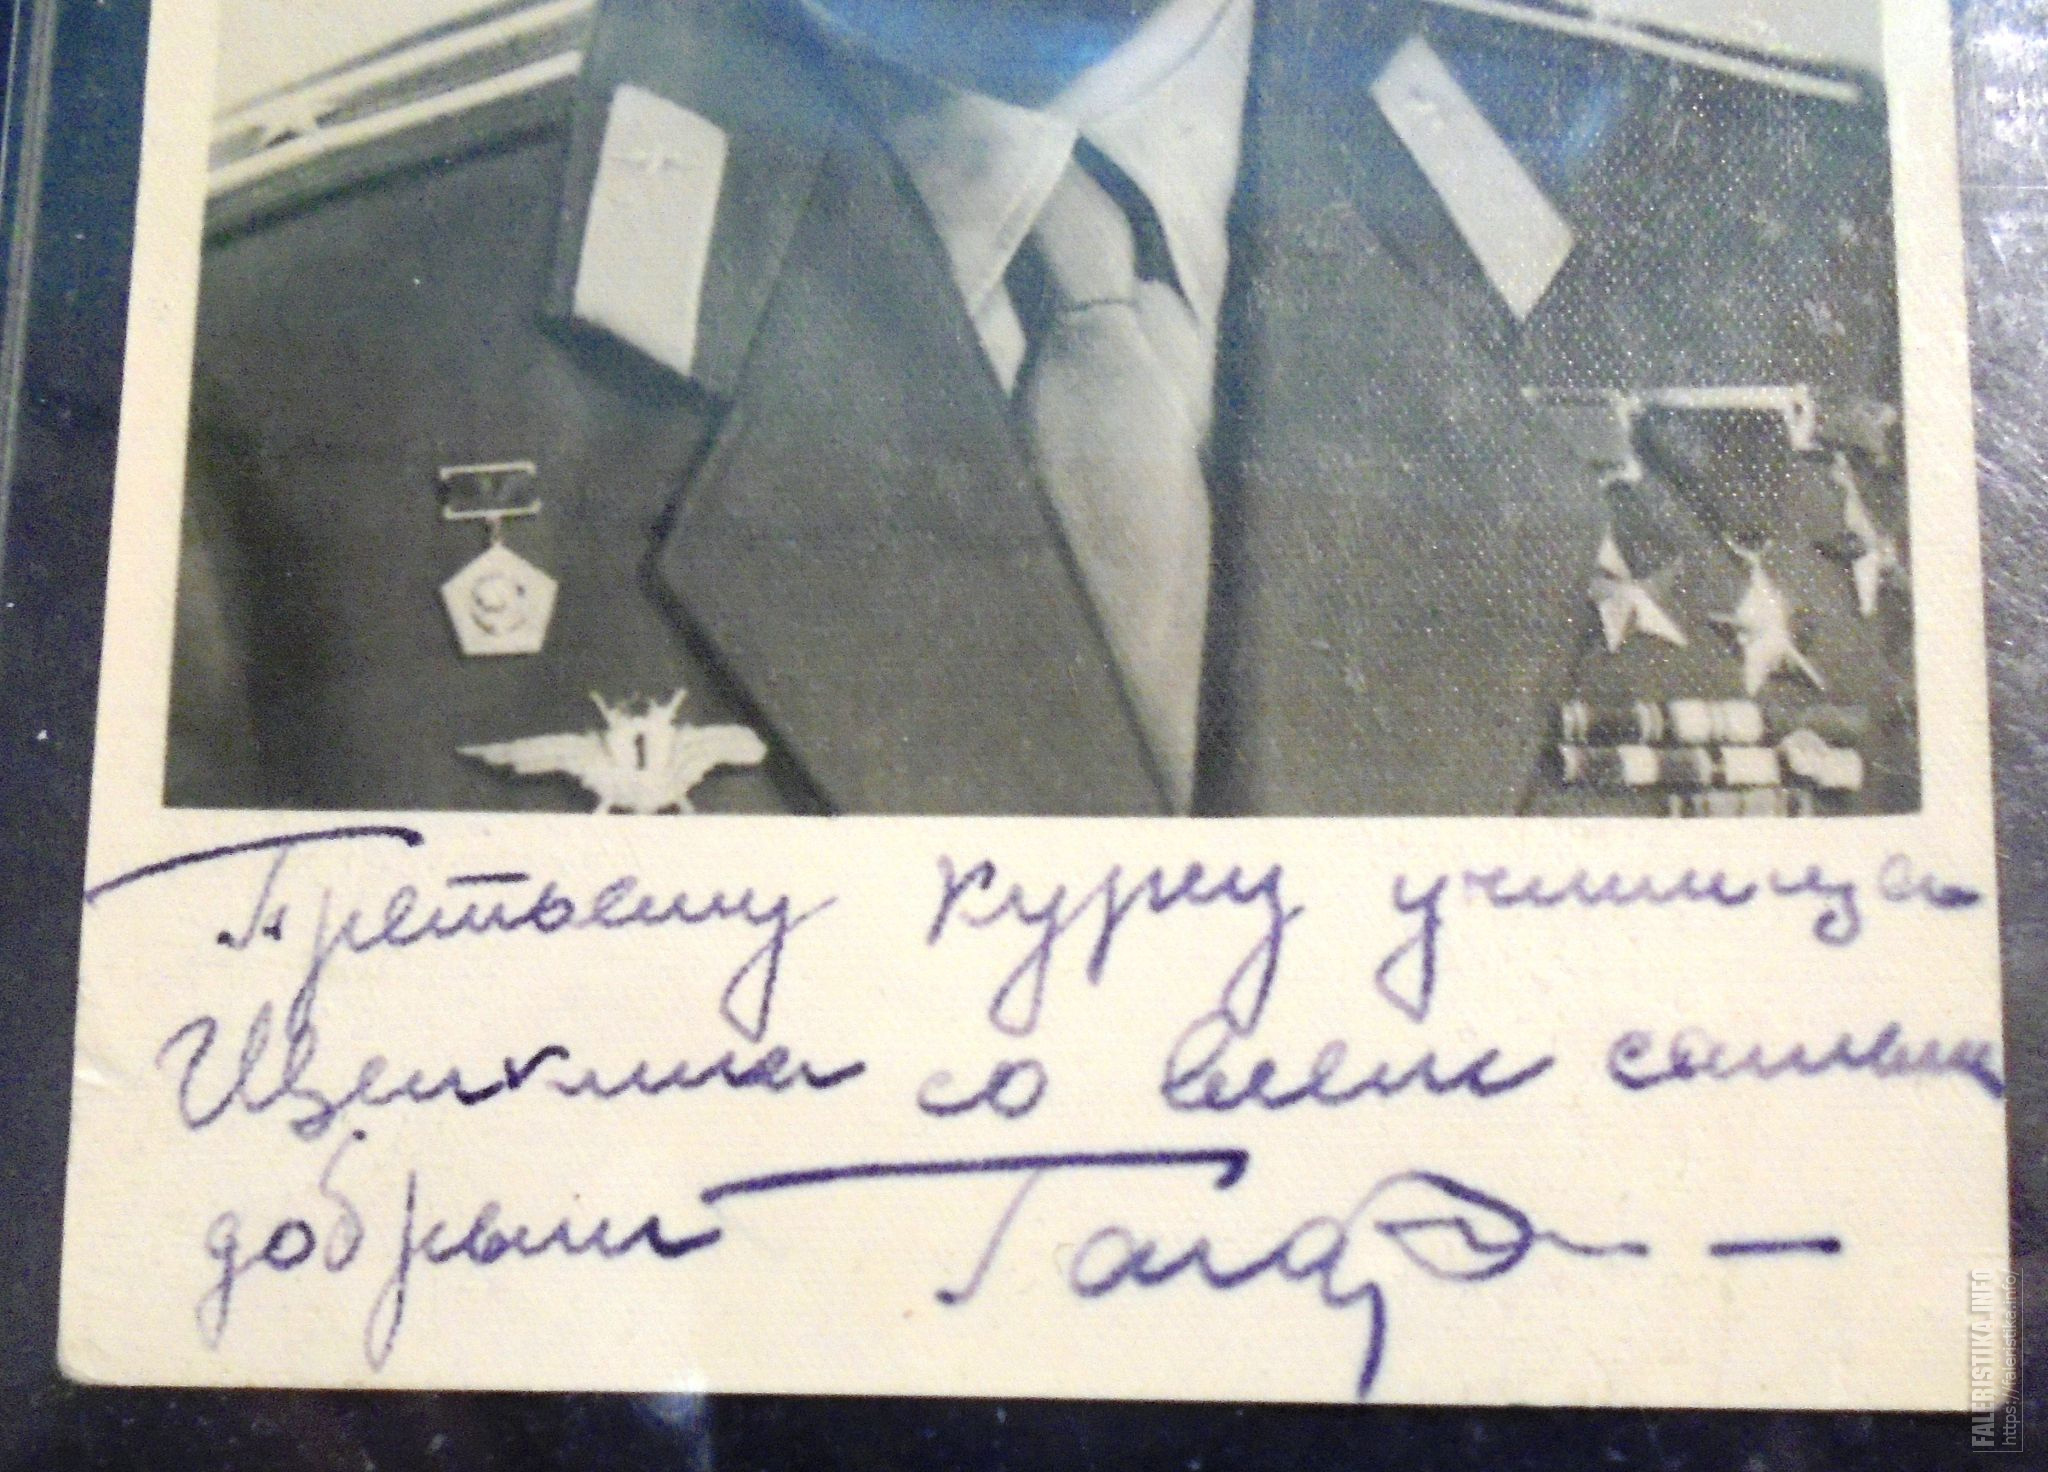 Третьему курсу училища
Щепкина со всем самым
добрым Гага
1
FALERISTIKA.INFO
https://faleristika.info/